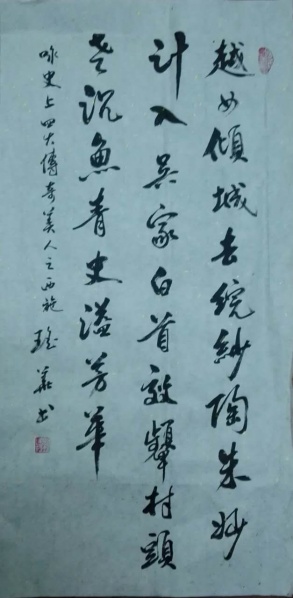 越女傾城去浣紗陶朱妙
計入吴家白首效顰村頭
老沉魚青史溢芳華
咏史上四大傳奇美人之西施 瑶華书